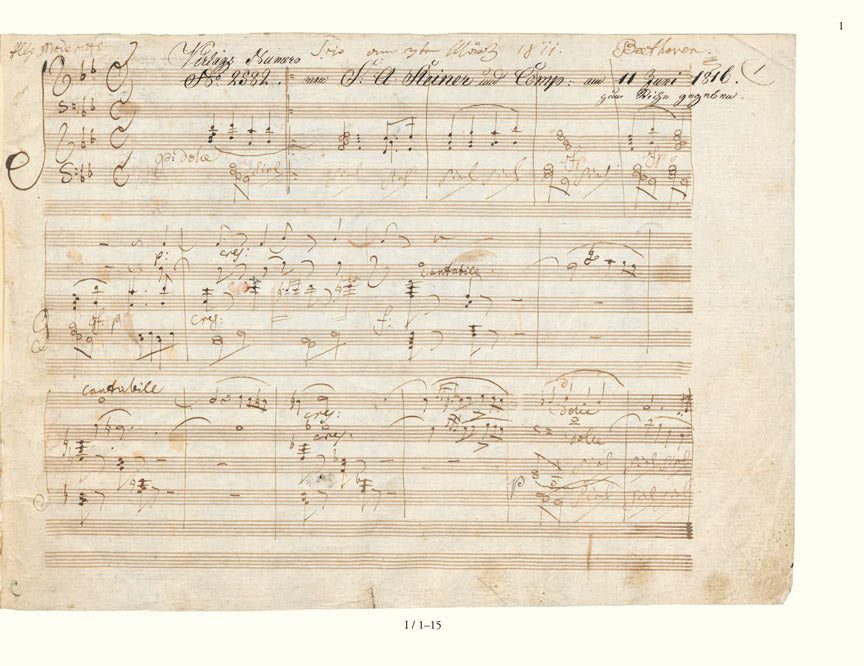 1
Allo Moderato
Trio am 3ten März 1811.
Beethoven.
Verlags Numero
No 2582. von S. A. Steiner und Comp: am 11 Juni 1816.
zum Stiche gegeben.
1
dolce
p:
cres:
cantabile
sf p
cres:
f:
cantabile
cres:
dolce
cres:
dolce
p
I / 1–15